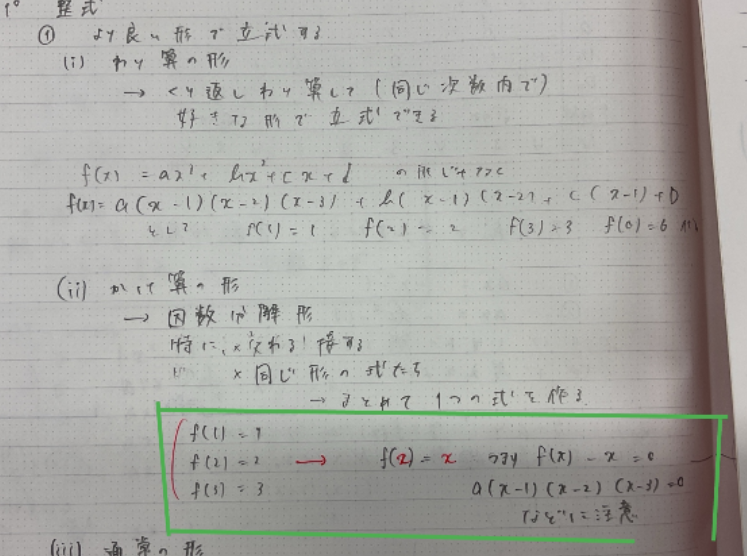 1° 整式
① より良い形で立式する
(i) わり算の形
→ くり返しわり算して (同じ次数内で)
好きな形で立式できる
f(x) = ax³ + bx² + cx + d の形じゃなく
f(x) = a(x-1)(x-2)(x-3) + b(x-1)(x-2) + c(x-1) + D
として f(1) = 1 f(2) = 2 f(3) = 3 f(0) = 6
(ii) かけ算の形
→ 因数分解形
特に、× 交わる! 接する
× 同じ形の式たち
→ まとめて 1つの式を作る.
f(1) = 1
f(2) = 2 → f(x) = x つまり f(x) - x = 0
f(3) = 3 a(x-1)(x-2)(x-3) = 0
などに注意
(iii) 通常の形